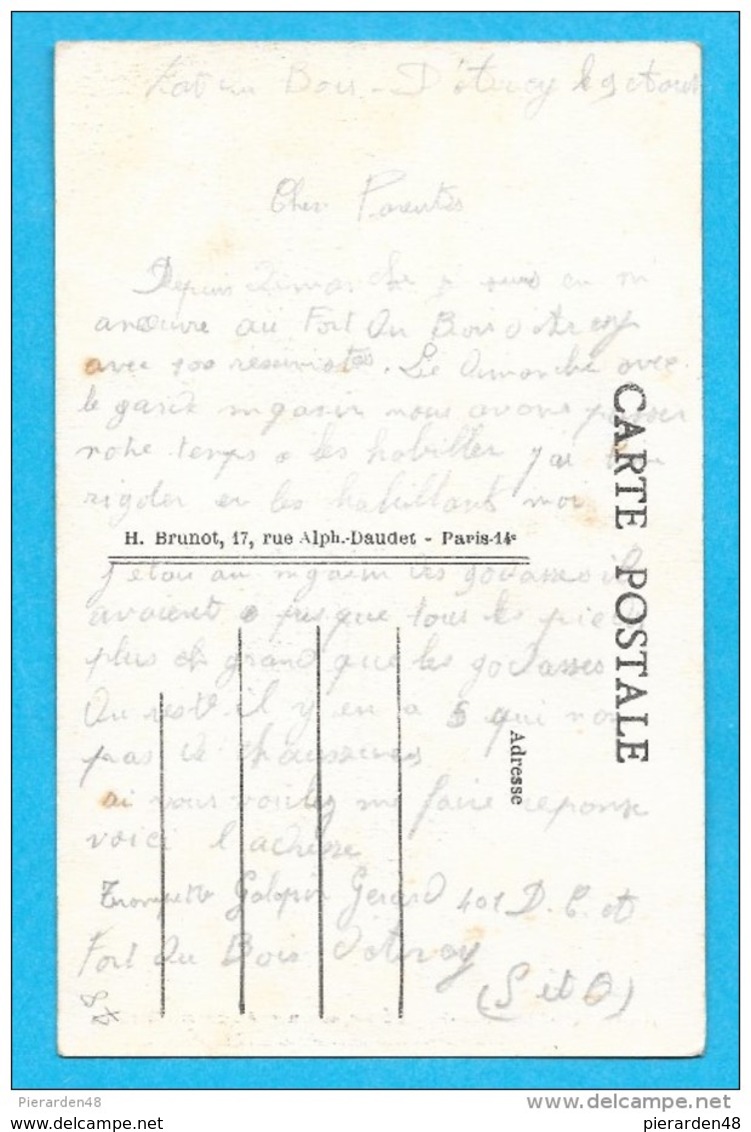 Bois - D'atrcy le 9 Aout
Cher Parents
Depuis Dimanche je suis en m
anœuvre au Fort Du Bois d'Atrcy
avec 100 réservistes. Le Dimanche avec
le garde mgasin nous avons passer
notre temps a les habiller j'ai
rigoler en les habillants moi
H. Brunot, 17, rue Alph.-Daudet - Paris-14e
j'etais au mgasin les godasses il
avaient presque tous les pieds
plus grand que les godasses
Du reste il y en a 5 qui non
pas de chaussures
si vous voulez me faire reponse
voici l'adresse
Trompette Galopin Gerard 401 D. C. at
Fort Du Bois d'atrcy
(S et O)
48
CARTE POSTALE
Adresse
Pierarden48
delcampe.net
Pierarden48
pierarden48